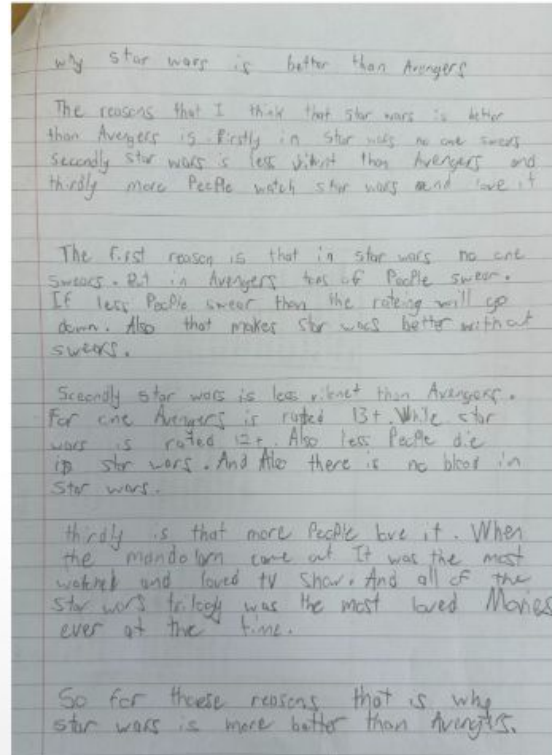 why star wars is better than Avengers
The reasons that I think that star wars is better
than Avengers is firstly in star wars no one swears
Secondly star wars is less than Avengers and
thirdly more People watch star wars and love it
The first reason is that in star wars no one
swears. But in Avengers tons of People swear.
If less People swear than the rateing will go
down. Also that makes star wars better without
swears.
Secondly star wars is less than Avengers.
For one Avengers is rated 13+. While star
wars is rated 12+. Also less People die
in star wars. And Also there is no blood in
Star wars.
thirdly is that more People love it. When
the came out It was the most
and loved tv show. And all of the
Star wars trilogy was the most loved Movies
ever at the time.
So for theese reasons that is why
star wars is more better than Avengers.